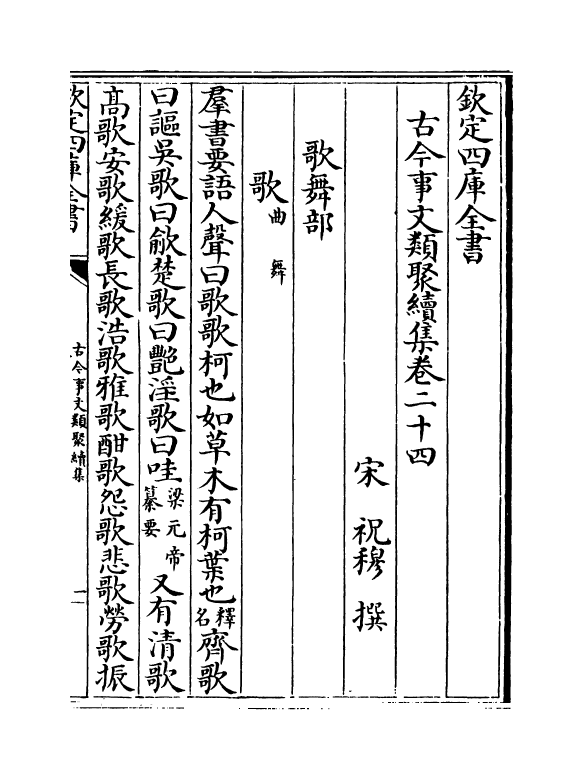 欽定四庫全書
古今事文類聚續集卷二十四
宋 祝穆 撰
歌舞部
歌曲 舞
羣書要語人聲曰歌歌柯也如草木有柯葉也釋名齊歌
曰謳吳歌曰歈楚歌曰艷淫歌曰哇梁元帝纂要又有清歌
高歌安歌緩歌長歌浩歌雅歌酣歌怨歌悲歌勞歌振
欽定四庫全書
古今事文類聚續集
一